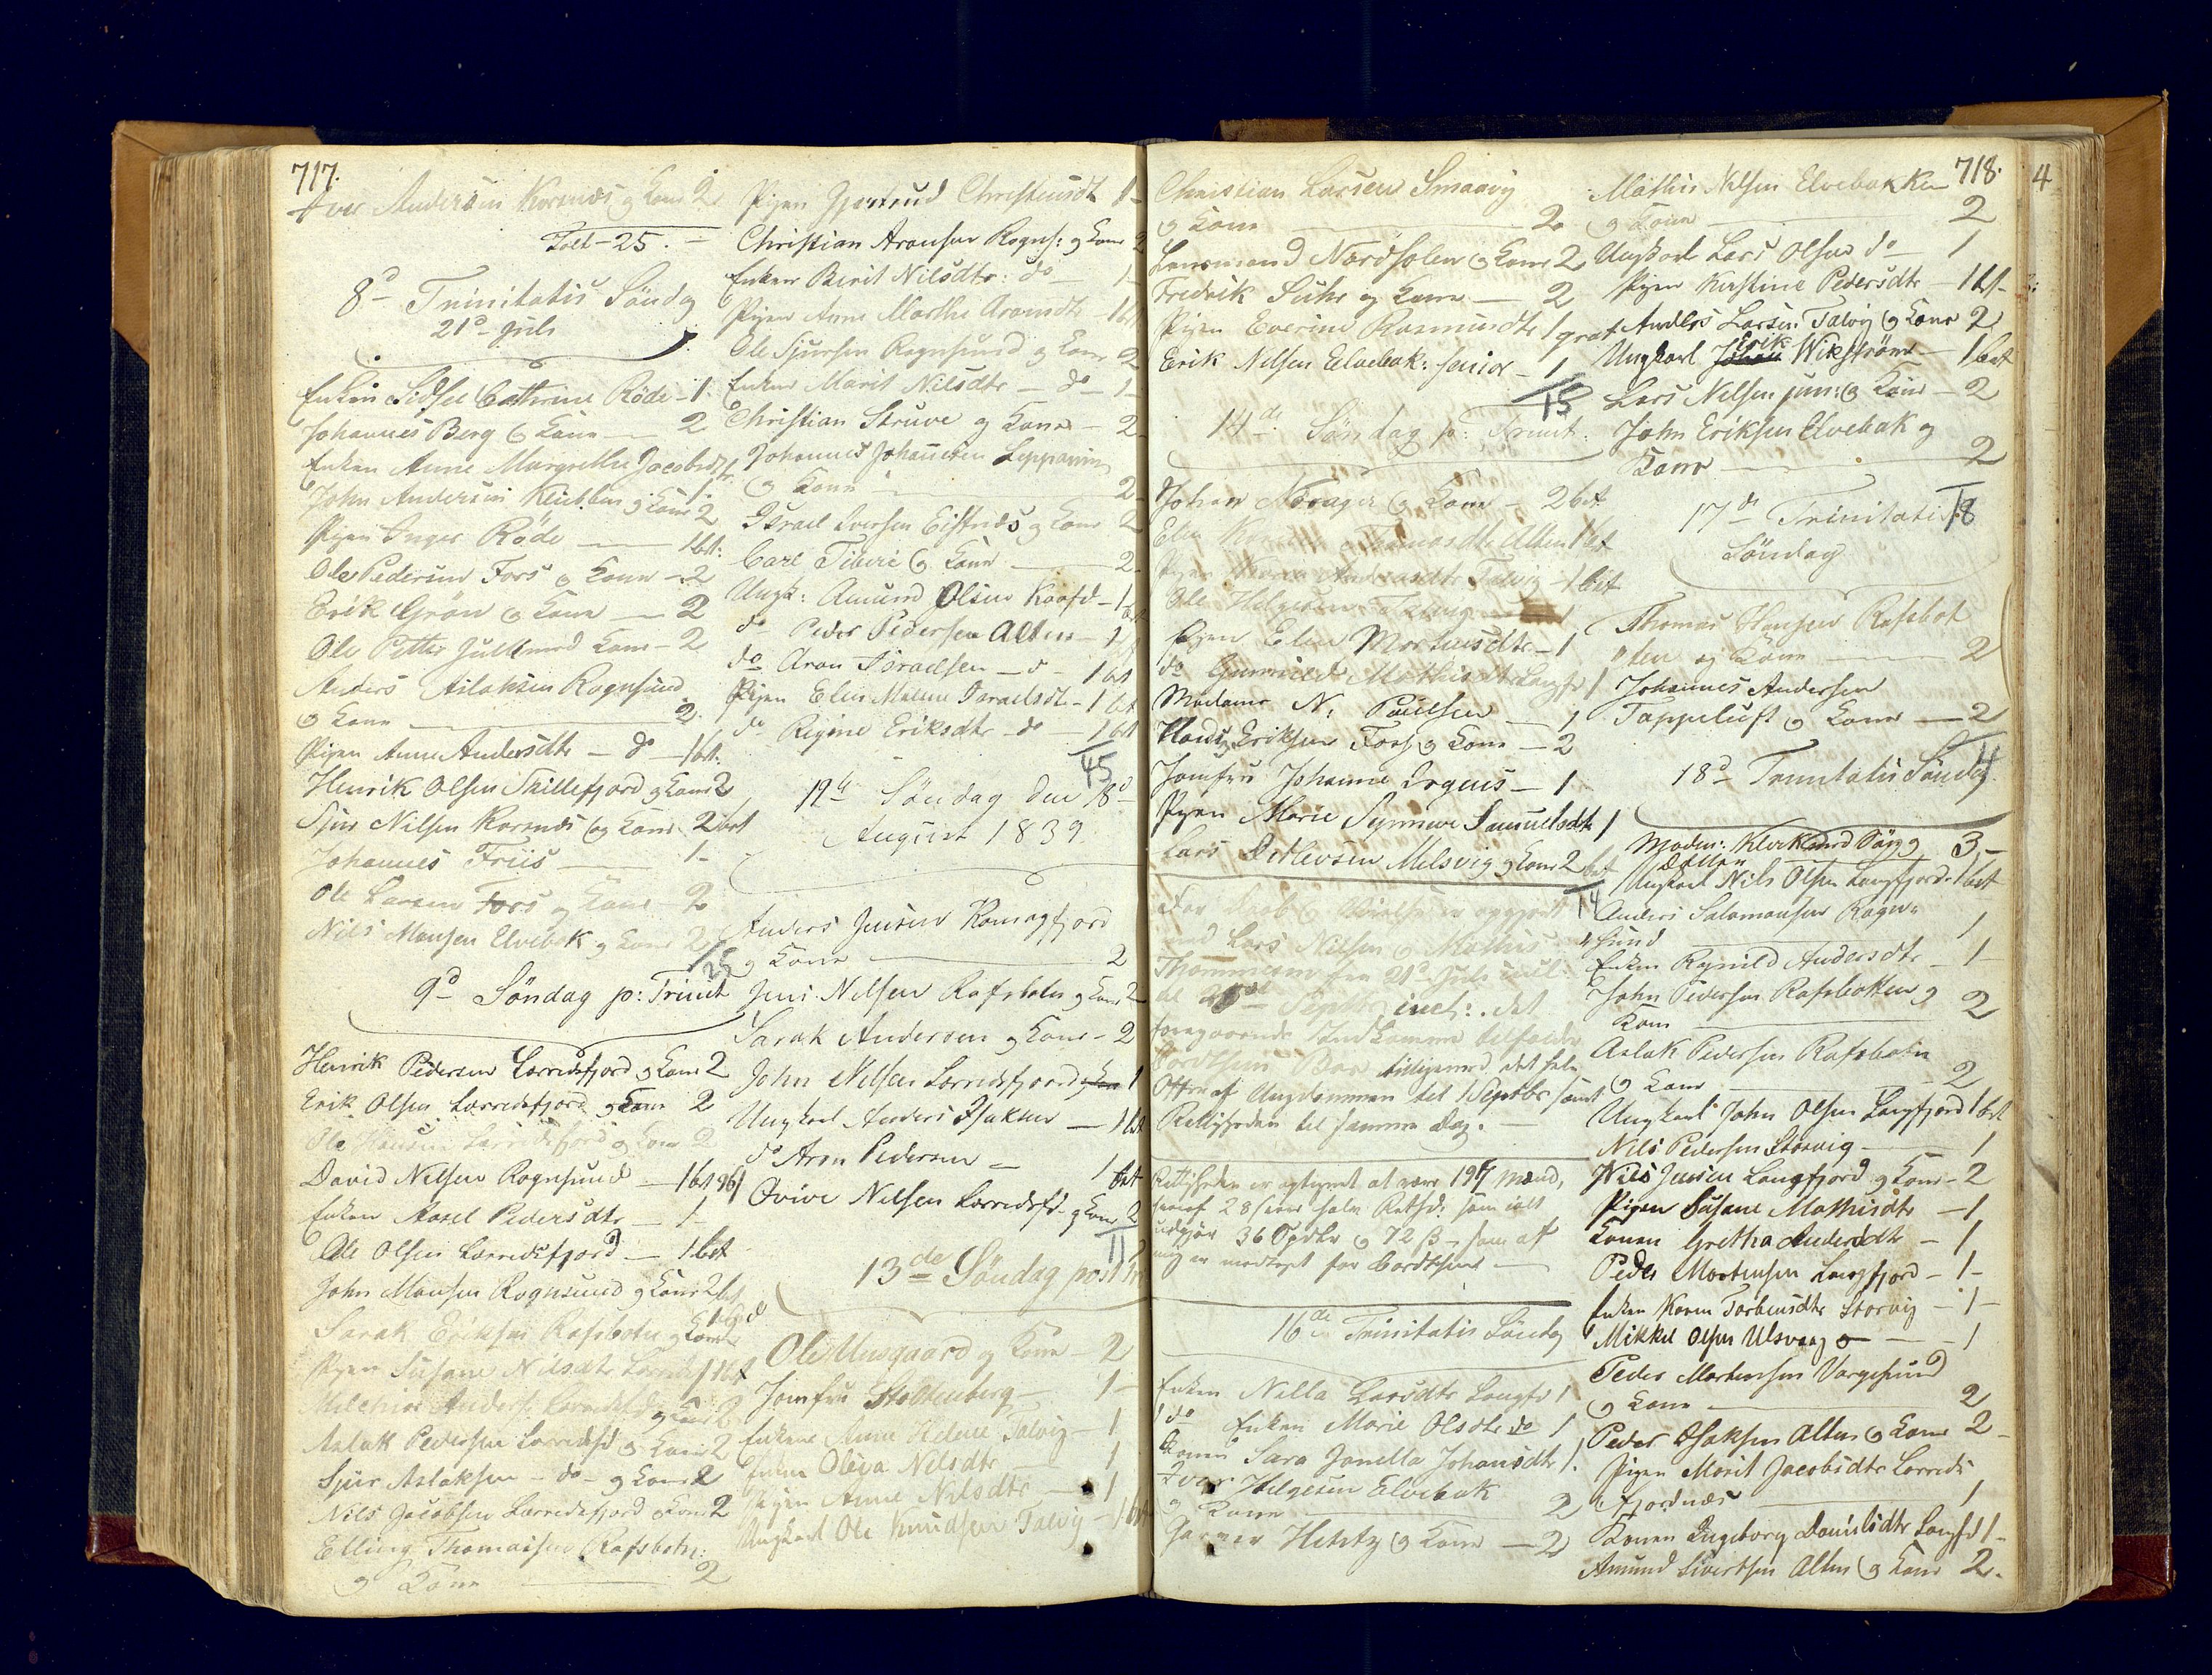 717.
Iver Andersen Korsnæs og Kone 2
Talt - 25. -
8d Trinitatis Söndag
21d Juli
Enken Sidsel Cathrine Röde - 1
Johannes Berg og Kone - 2
Enken Anne Margrethe Jacobsdtr
1.
John Andersen Klubben og Kone 2
Pigen Inger Röde - 1 bet:
Ole Pedersen Fors og Kone - 2
Erik Grön og Kone - 2
Ole Petter Kone - 2
Anders Aslaksen Rognsund
og Kone - 2.
Pigen Anne Andersdtr - do - 1 bet:
Henrik Olsen Tillefjord og Kone 2
Sjur Nilsen Korsnæs og Kone 2 bet
Johannes Friis - 1 -
Ole Larsen Fors og Kone - 2
Nils Monsen Elvebak og Kone 2
9d Söndag p: Trinit
Henrik Pedersen Lerredsfjord og Kone 2
Erik Olsen Lerredsfjord og Kone 2
Ole Hansen Lerredsfjord og Kone 2
David Nilsen Rognsund - 1 bet
Enken Marel Pedersdtr - 1 -
Ole Olsen Lerredsfjord - 1 bet
John Monsen Rognsund og Kone 2 bet
Sarak Eriksen Rafsbotn og Kone
Pigen Susane Nilsdtr 1 bet
og Kone 2
Aslak Pedersen Lerredsfd og Kone 2
Sjur Aslaksen - do - og Kone 2
Nils Jacobsen Lerredsfjord og Kone 2
Elling Thomassen Rafsbotn
og Kone - 2
Pigen Gjertrud Christensdt 1 -
Christian Aronsen Rogns: og Kone 2
Enken Berit Nilsdtr: do - 1 -
Pigen Anne Marthe Aronsdtr - 1 bet
Ole Sjursen Rognsund og Kone 2
Enken Marit Nilsdtr - do - 1 -
Christian Struve og Kone - 2 -
Johannes Johannesen Leppanen
og Kone - 2 -
Israel Iversen og Kone 2
Carl Tiberi og Kone - 2 -
Ungk: Amund Olsen Kaafd - 1 bet
do Peder Pedersen Alten - 1
do Aron Israelsen - do - 1 bet
Pigen Elen Malene Israelsdt - 1 bet
do Regine Eriksdtr - do - 1 bet
45
12te Söndag den 18d
August 1839.
Anders Jensen Komagfjord
og Kone - 2
Jens Nilsen Rafsbotn og Kone 2
Sarak Andersen og Kone - 2
John Nilsen Lerredsfjord og Kone 1
Ungkarl Anders Isaksen - 1 bet
do Aron Pedersen - 1 bet
Ovive Nilsen Lerredsfd - og Kone 2
11
13de Söndag post Tr
Ole Musgaard og Kone - 2
Jomfru Stoltenberg - 1 -
Enken Anne Helene Talvig - 1
Enken Oleva Nilsdtr - 1
Pigen Anne Nilsdtr - 1
Ungkarl Ole Knudsen Talvig - 1 bet
718.
Christian Larsen Smaavig
og Kone - 2
Lensmand Nordholm og Kone 2
Fredrik Suhr og Kone - 2
Pigen Everine Rasmusdtr 1 grat
Erik Nilsen Elvebak: senior - 1
15
14de Söndag p: Trinit:
Johan Norager og Kone - 2 bet
Thomasdtr Alten 1 bet
Pigen Andreasdtr Talvig - 1 bet
Ole Helgesen Talvig 1
Pigen Elen Mortensdtr - 1
do Gunnild Mathisdtr Langfd 1
Madame N: Poulsen - 1
Hans Eriksen Fors og Kone - 2
Jomfru Johanne - 1
Pigen Marie Synneve Samuelsdtr 1
Lars Detlevsen Melsvig og Kone 2 bet
14
opgjort
med Lars Nilsen og Mathis
Thommesen fra 21d Juli incl:
til Septbr incl:. det
foregaaende Indkomme tilfalder
tilligemed det halve
Offer af Ungdommen det 1 Septbr samt
Rettigheden til samme Dag.
Rettigheden er optegnet at være 197 Mænd,
heraf 28 halv Retsd: som ialt
udgjør 36 Spdlr og 72 ß - som af
mig er modtaget for Cordtsens -
16de Trinitatis Söndag
Enken Nella Larsdtr Langfd 1
do Enken Marie Olsdtr do 1
Konen Sara Janella Johansdtr 1.
Iver Helgesen Elvebak
og Kone - 2
Garver Hetzty og Kone - 2
Mathis Nilsen Elvebakken
og Kone - 2
Ungkarl Lars Olsen do - 1
Pigen Kirstine Pedersdtr - 1 bet -
Anders Larsen Talvig og Kone 2
Ungkarl Erik Wikström - 1 bet
Lars Nilsen jun: og Kone - 2
John Eriksen Elvebak og
Kone - 2
18
17de Trinitatis
Söndag
Thomas Hansen Rafsbot
"ten og Kone - 2
Johannes Andersen
Tappeluft og Kone - 2
4
18d Trinitatis Söndag
Madm: Klerk med Søn og 3 -
Datter
Ungkarl Nils Olsen Langfjord 1 bet
Anders Salamonsen Rogn"
"sund - 1
Enken Ragnild Andersdtr - 1 -
John Pedersen Rafsbotten og
Kone - 2
Aslak Pedersen Rafsbotn
og Kone - 2
Ungkarl John Olsen Langfjord 1 bet
Nils Pedersen Storvig - 1
Nils Jensen Langfjord og Kone - 2
Pigen Susane Mathisdtr - 1
Konen Gretha Andersdtr - 1
Peder Mortensen Langfjord - 1 -
Enken Karen Torbensdtr Storvig - 1 -
Mikkel Olsen Ulsvaag - 1
Peder Mortensen Vargesund
og Kone - 2
Peder Isaksen Alten og Kone 2 -
Pigen Marit Jacobsdtr Lerreds
fjordnæs - 1
Konen Ingeborg Danielsdtr Langfd 1 -
Amund Sivertsen Alten og Kone 2.
4